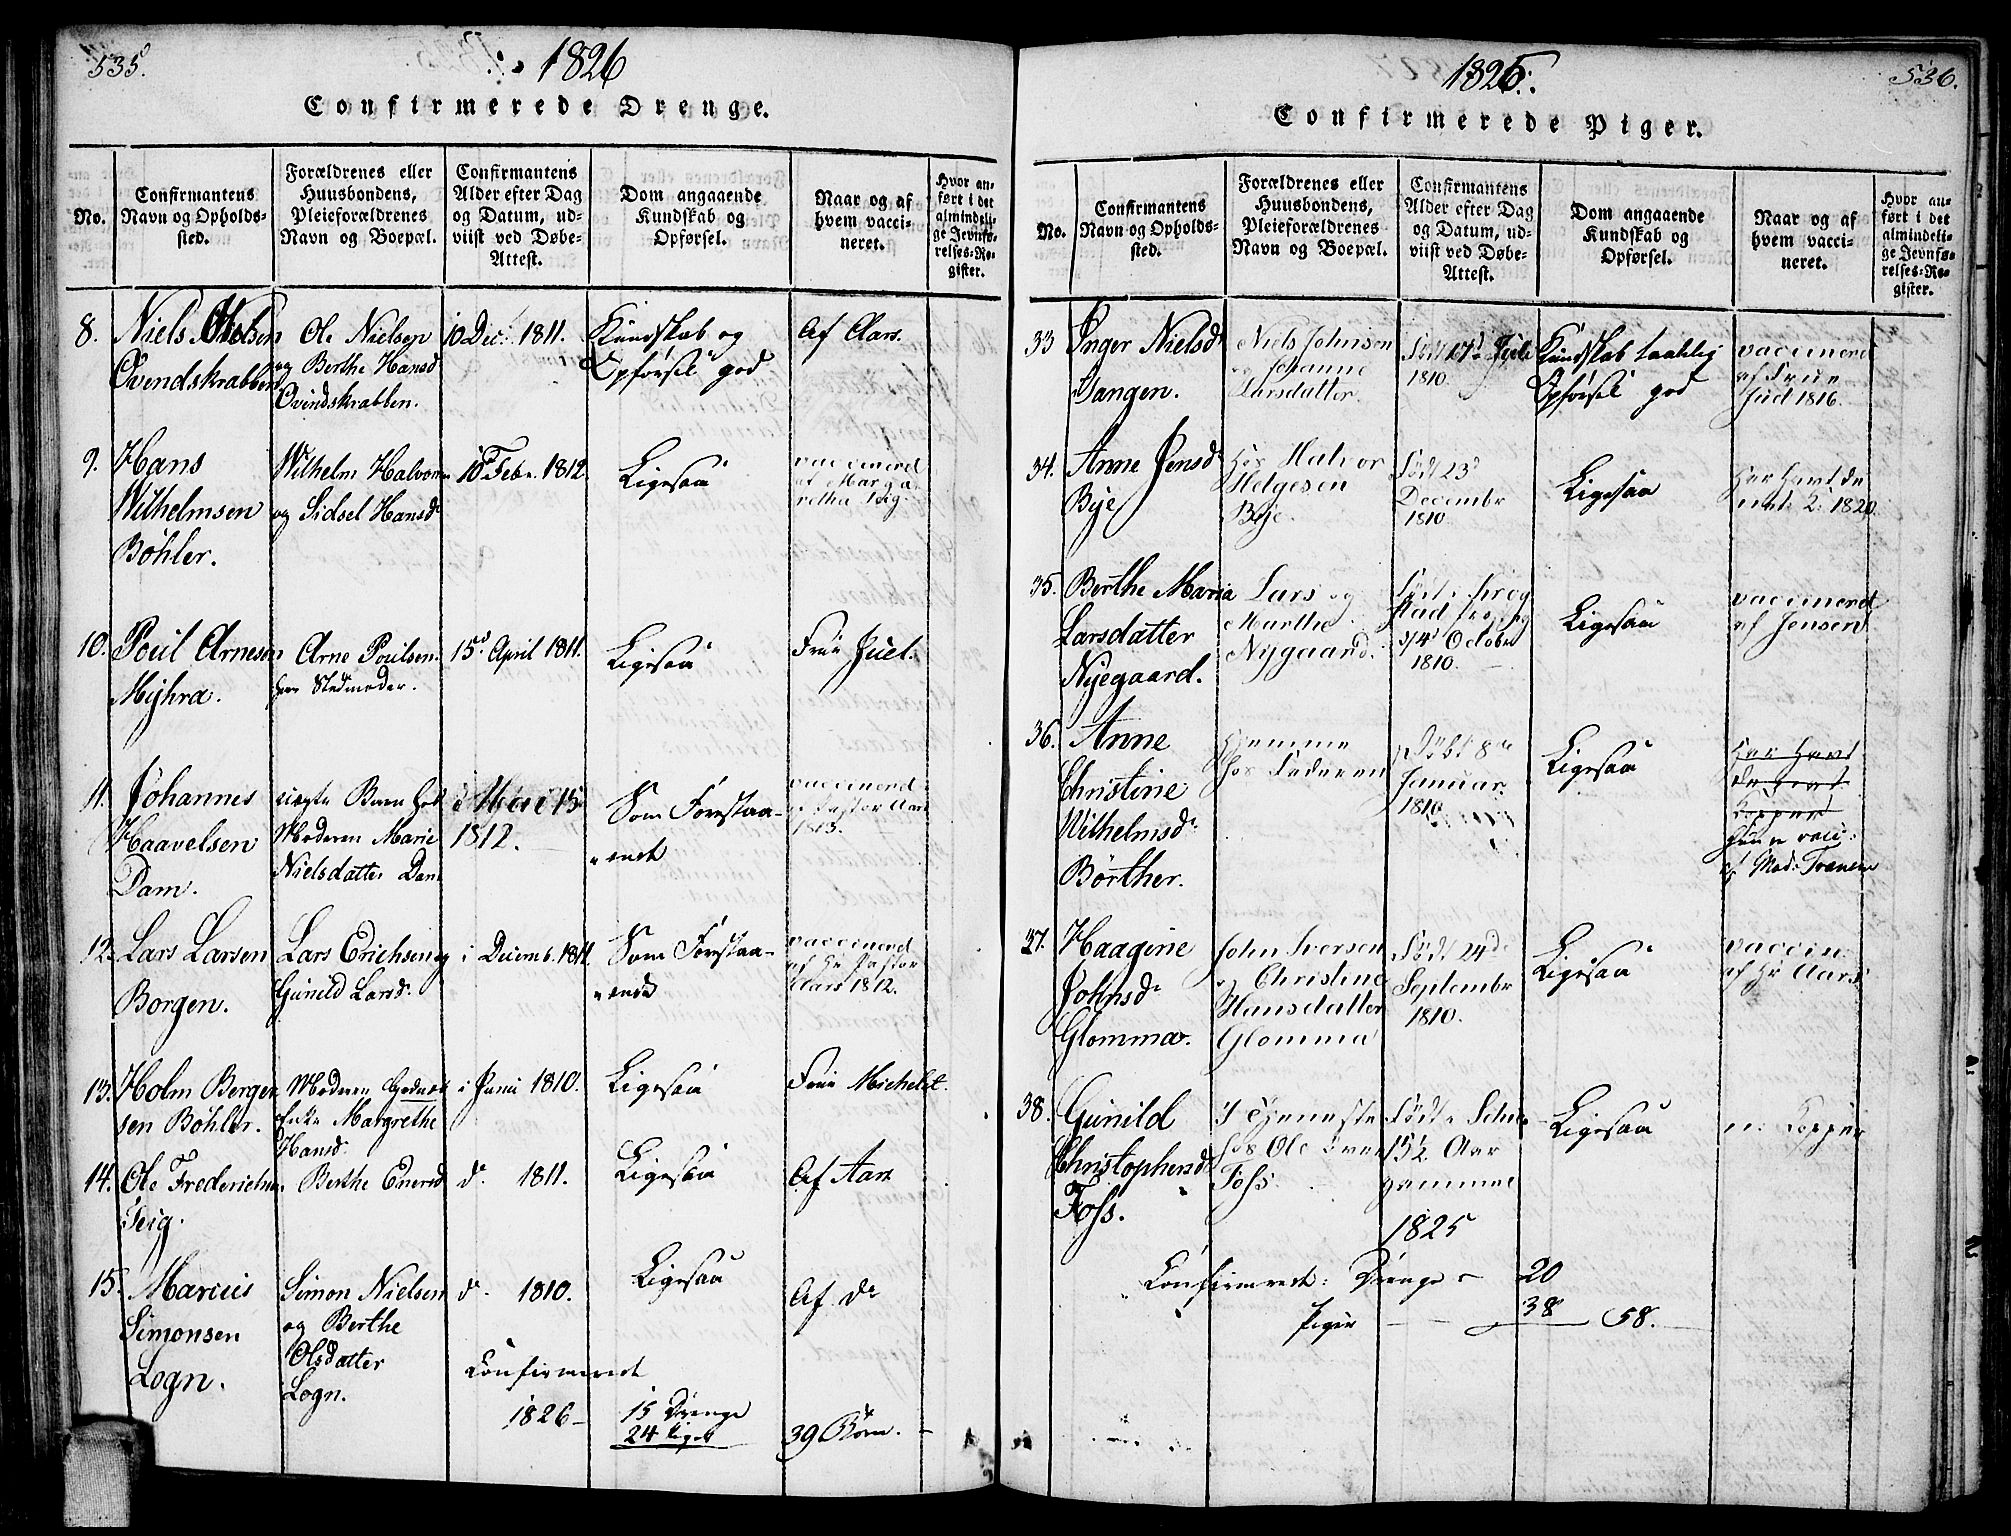 535.
1826
Confirmerede Drenge.
No.
Confirmantens
Navn og Opholds-
sted.
Forældrenes eller
Huusbondens,
Pleieforældrenes
Navn og Boepæl.
Confirmantens
Alder efter Dag
og Datum, ud-
viist ved Døbe-
Attest.
Dom angaaende
Kundskab og
Opførsel.
Naar og af
hvem vacci-
neret.
Hvor an-
ført i det
almindeli-
ge Jevnfø-
relses-Re-
gister.
8.
Niels Olsen
Øvindskrabben
Ole Nielsen
og Berthe Hansd
Øvindskrabben.
10 Dec. 1811.
Kundskab og
Opførsel god
Af Aars.
9.
Hans
Wilhelmsen
Bøhler.
Wilhelm Halvorsen
og Sidsel Hansd
10 Febr. 1812.
Ligesaa
vaccinered
af Marga
retha Teig
10.
Poul Arnesen
Mÿhra.
Arne Poulsen.
Stedmoder.
15d April 1811.
Ligesaa
Frue Juel.
11.
Johannes
Haavelsen
Dam.
uægte Barn hos
Moderen Marie
Nielsdatter Dam
15
1812.
Som Forstaa-
ende
vaccinered
af Pastor Aars
1813.
12.
Lars Larsen
Borgen.
Lars Erichsen og
Gunild Larsd.
i Decemb. 1811.
Som Forstaa-
ende
vaccinered
af Hr Pastor
Aars 1812.
13.
Holm Berger
sen Bøhler.
Moderen
Enke Margrethe
Hansd.
i Juni 1810.
Ligesaa
Frue Michelet.
14.
Ole Frederichsen
Teig.
Berthe Enersd
do 1811.
Ligesaa
Af Aars
15.
Marius
Simonsen
Logn.
Simon Nielsen
og Berthe
Olsdatter
Logn.
do 1810.
Ligesaa
Af do
Confirmeret
1826 -
15 Drenge
24 Piger
39 Børn. -
1825.
536.
Confirmerede Piger.
No.
Confirmantens
Navn og Opholds-
sted.
Forældrenes eller
Huusbondens,
Pleieforældrenes
Navn og Boepæl.
Confirmantens
Alder efter Dag
og Datum, ud-
viist ved Døbe-
Attest.
Dom angaaende
Kundskab og
Opførsel.
Naar og af
hvem vacci-
neret.
Hvor an-
ført i det
almindeli-
ge Jevnfø-
relses-Re-
gister.
33
Inger Nielsd
Tangen.
Niels Johnsen
og Johanne
Larsdatter.
Født 17d Juli
1810.
Kundskab taalelig
Opførsel god
vaccinered
af Frue
Juel 1816.
34.
Anne Jensd
Bye
hos Halvor
Helgesen
Bÿe.
Født 23d
Decembr
1810.
Ligesaa
Har havt de
1820.
35.
Berthe Maria
Larsdatter
Nyegaard.
Lars og
Marthe
Nygaard.
Født i Krog
stad
d 4 October
1810.
Ligesaa
vaccinered
af Jensen
36.
Anne
Christine
Wilhelmsd
Børther.
Hjemme
hos Faderen
Døbt 8de
Januar.
1810.
Ligesaa
Har havt
Kopper
Hun er vacc:
af Mad: Tranem
37.
Haagine
Johnsd
Glomma.
John Iversen
og Christine
Hansdatter
Glomma
Født 24de
Septembr
1810.
Ligesaa
vaccin
af Hr Aars
38.
Gunild
Christophersd
Foss.
I Tjeneste
hos Ole Iver
Foss.
Født
15½ Aar
gammel
Ligesaa
n. Kopper
1825
Confirmeret: Drenge - 20
Piger - - 38 58.